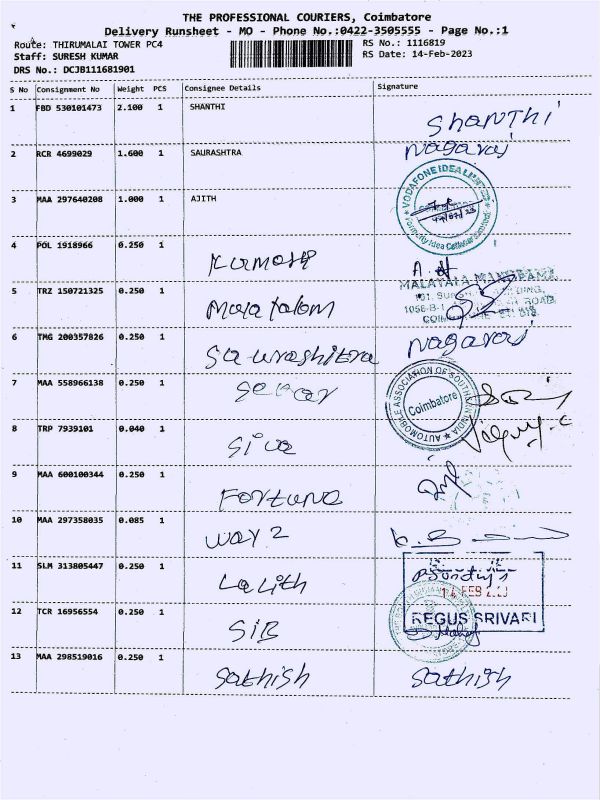 THE PROFESSIONAL COURIERS, Coimbatore
Delivery Runsheet - MO - Phone No.:0422-3505555 - Page No.:1
Route: THIRUMALAI TOWER PC4
RS No.: 1116819
Staff: SURESH KUMAR
RS Date: 14-Feb-2023
DRS No.: DCJB111681901
S No Consignment No Weight PCS Consignee Details Signature
1 FBD 530101473 2.100 1 SHANTHI SHANTHI
2 RCR 4699029 1.600 1 SAURASHTRA Nagaraj
3 MAA 297640208 1.000 1 AJITH
VODAFONE IDEA LIMITED
(Formerly Idea Cellular Limited)
4 POL 1918966 0.250 1
MALAYALA MANORAMA
5 TRZ 150721325 0.250 1 Malayalam
ROAD,
6 TMG 200357826 0.250 1 Saurashtra Nagaraj
7 MAA 558966138 0.250 1 Sekar
AUTOMOBILE ASSOCIATION OF SOUTHERN INDIA
Coimbatore
8 TRP 7939101 0.040 1 Siva
9 MAA 600100344 0.250 1 Fortune
10 MAA 297358035 0.085 1 way 2
11 SLM 313805447 0.250 1 Lalith
12 TCR 16956554 0.250 1 SIB
REGUS SRIVARI
13 MAA 298519016 0.250 1 Sathish Sathish